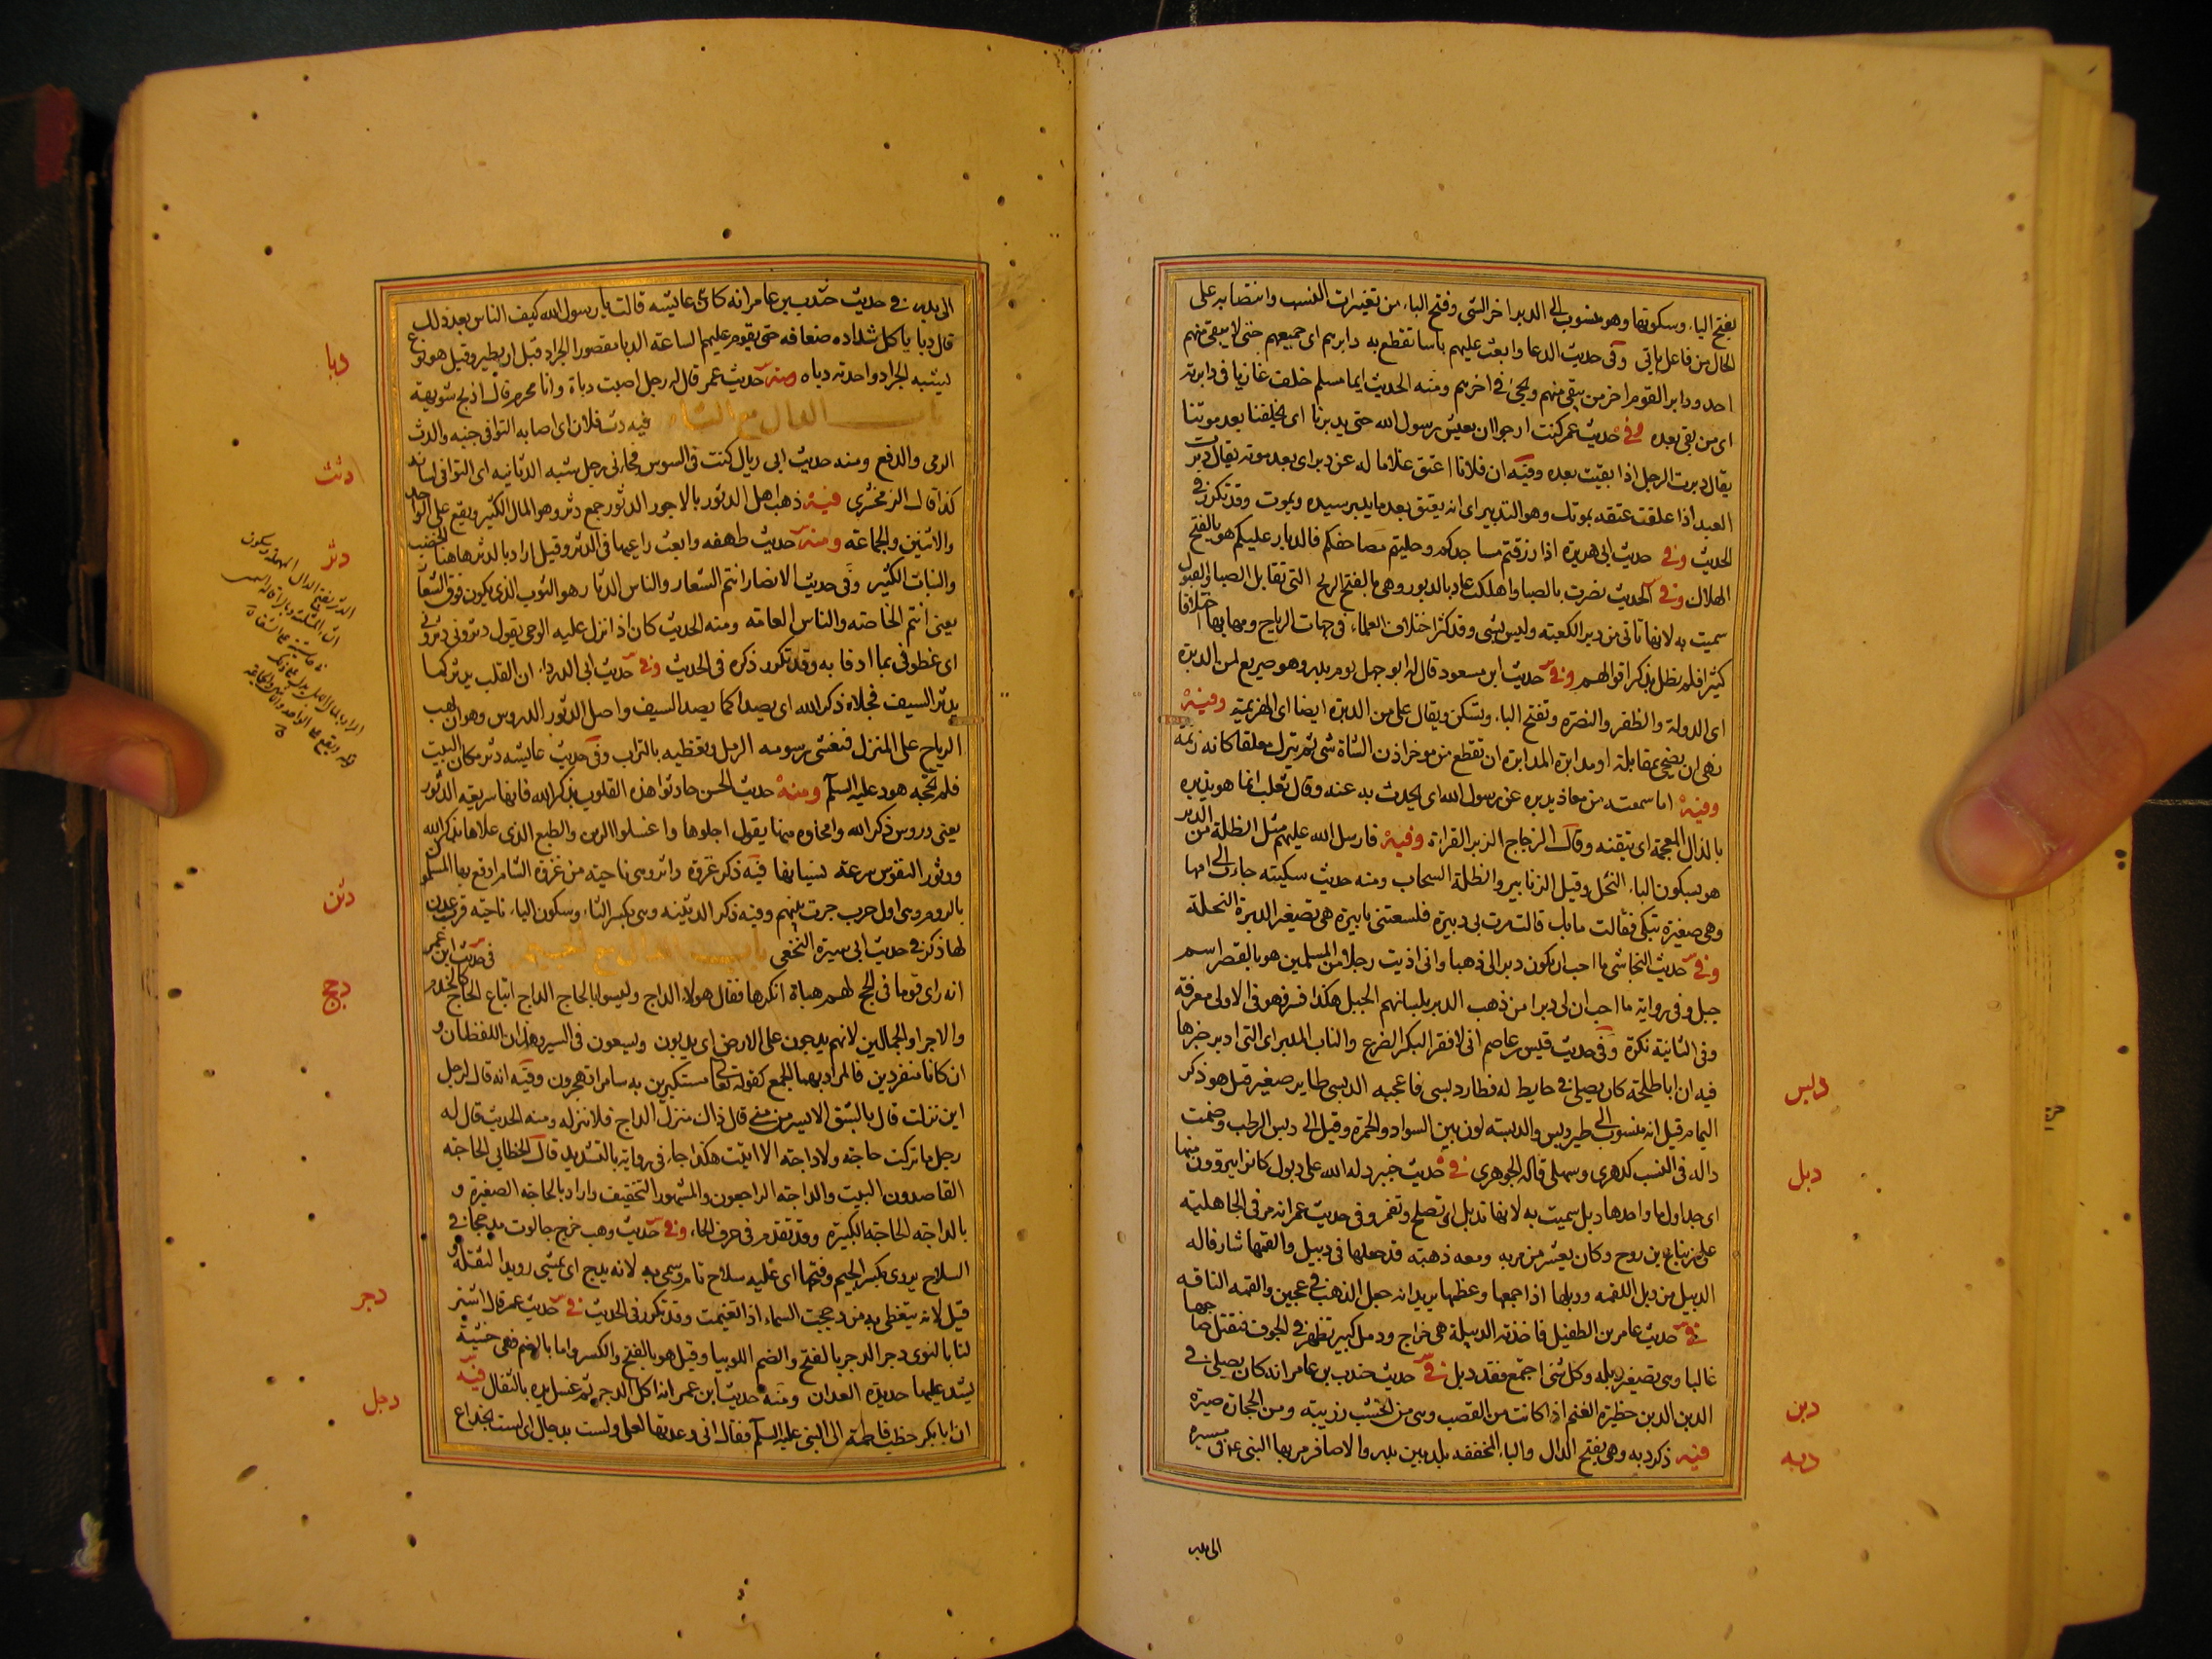 بفتح الباء وسكونها وهو منسوب الى الدبر اخر الشى وفتح الباء من تغيرات النسب وانتصابه على
الحال من فاعل ياتى وفى حديث الدعا وابعث عليهم باسا تقطع به دابرهم اى جميعهم حتى لا يبقى منهم
احد ودابر القوم اخر من يبقى منهم ويجئ فى اخرهم ومنه الحديث ايما مسلم خلف غازيا فى دابرته
اى من بقى بعده وفى حديث عمر كنت ارجو ان يعيش رسول الله حتى يدبرنا اى يخلفنا بعد موتنا
يقال دبرت الرجل اذا بقيت بعده وفيه ان فلانا اعتق غلاما له عن دبر اى بعد موته يقال دبرت
العبد اذا علقت عتقه بموتك وهو التدبير اى انه يعتق بعد ما يدبر سيده ويموت وقد تكرر فى
الحديث وفى حديث ابى هريرة اذا زوقتم مساجدكم وحليتم مصاحفكم فالدبار عليكم هو بالفتح
الهلاك وفى الحديث نصرت بالصبا واهلكت عاد بالدبور وهى بالفتح الريح التى تقابل الصبا والقبول
سميت به لانها تاتى من دبر الكعبة وليس بشى وقد كثر اختلاف العلماء فى جهات الرياح ومهابها اختلافا
كثيرا فلم نطل بذكر اقوالهم وفى حديث ابن مسعود قال له ابو جهل يوم بدر وهو صريع لمن الدبرة
اى الدولة والظفر والنصرة وتفتح الباء وتسكن ويقال على من الدبرة ايضا اى الهزيمة وفيه
نهى ان يضحى بمقابلة او مدابرة المدابرة ان تقطع من موخر اذن الشاة شى ثم يترك معلقا كانه زنمة
وفيه اما سمعته من معاذ يدبره عن رسول الله اى يحدث به عنه وقال ثعلب انما هو يذبره
بالذال المعجمة اى يتقنه وقال الزجاج الذبر القراءة وفيه فارسل الله عليهم مثل الظلة من الدبر
هو بسكون الباء النحل وقيل الزنابير والظلة السحاب ومنه حديث سكينة جاءت الى امها
وهى صغيرة تبكى فقالت ما بك قالت مرت بى دبيرة فلسعتنى بابيرة هى تصغير الدبرة النحلة
وفى حديث النجاشى ما احب ان يكون دبرا لى ذهبا وانى اذيت رجلا من المسلمين هو بالقصر اسم
جبل وفى رواية ما احب ان لى دبرا من ذهب الدبر بلسانهم الجبل هكذا فسر فهو فى الاولى معرفة
وفى الثانية نكرة وفى حديث قيس بن عاصم انى لافقر البكر الضرع والناب المدبر اى التى ادبر خيرها
فيه ان ابا طلحة كان يصلى فى حايط له فطار دبسى فاعجبه الدبسى طاير صغير قيل هو ذكر
دبس
اليمام قيل انه منسوب الى طير دبس والدبسة لون بين السواد والحمرة وقيل الى دبس الرطب وضمت
داله فى النسب كدهرى وسهلى قاله الجوهرى فى حديث خيبر دله الله على دبول كانوا يتروون منها
دبل
اى جداول ماء واحدها دبل سميت به لانها تدبل اى تصلح وتعمر وفى حديث عمر انه مر فى الجاهلية
على زنباع بن روح وكان يعشر من مر به ومعه ذهبة فجعلها فى دبيل والقمها شارفا له
الدبيل من دبل اللقمه ودبلها اذا جمعها وعظمها يريد انه جعل الذهب فى عجين والقمه الناقه
فى حديث عامر بن الطفيل فاخذته الدبيلة هى خراج ودمل كبير تظهر فى الجوف فتقتل صاحبها
غالبا وهى تصغير دبله وكل شى اجتمع فقد دبل فى حديث جندب بن عامر انه كان يصلى فى
الدبن الدبن حظيرة الغنم اذا كانت من القصب وهى من الخشب زريبة ومن الحجارة صيرة
دبن
فيه ذكر دبه وهى بفتح الدال والباء المخففه بلد بين بدر والاصافر مر بها النبى عند مسيره
دبه
الى بدر
الى بدر فى حديث جندب بن عامر انه كان عايشه قالت يا رسول الله كيف الناس بعد ذلك
قال دبا ياكل شداده ضعافه حتى تقوم عليهم الساعة الدبا مقصورا الجراد قبل ان يطير وقيل هو نوع
دبا
يشبه الجراد واحدته دباة ومنه حديث عمر قال له رجل اصبت دباة وانا محرم قال اذبح شويهة
باب الدال مع الثاء فيه دث فلان اى اصابه التوا فى جنبه والدث
الرمى والدفع ومنه حديث ابى ريال كنت فى السوس فجاءنى رجل به شبه الدثانيه اى التوا فى لسانه
دثث
كذا قال الزمخشرى فيه ذهب اهل الدثور بالاجور الدثور جمع دثر وهو المال الكثير ويقع على الواحد
والاثنين والجماعة ومنه حديث طهفه وابعث راعيها فى الدثر وقيل اراد بالدثر هاهنا الخصب
دثر
والنبات الكثير وفى حديث الانصار انتم الشعار والناس الدثار هو الثوب الذى يكون فوق الشعار
يعنى انتم الخاصة والناس العامة ومنه الحديث كان اذا نزل عليه الوحى يقول دثرونى دثرونى
اى غطونى بما ادفا به وقد تكرر ذكره فى الحديث وفى حديث ابى الدرداء ان القلب يدثر كما
يدثر السيف فجلاه ذكر الله اى يصدا كما يصدا السيف واصل الدثور الدروس وهو ان تهب
الرياح على المنزل فتغشى رسومه الرمل وتغطيه بالتراب وفى حديث عايشه دثر مكان البيت
فلم يحجه هود عليه السلم ومنه حديث الحسن حادثوا هذه القلوب بذكر الله فانها سريعة الدثور
يعنى دروس ذكر الله وامحاوه منها يقول اجلوها واغسلوا الرين والطبع الذى علاها بذكر الله
ودثور النفوس سرعة نسيانها فيه ذكر غزوة داثن وهى ناحية من غزة الشام اوقع بها المسلمون
دثن
بالروم وهى اول حرب جرت بينهم وفيه ذكر الدثينه وهى بكسر الثاء وسكون الياء ناحية قرب عدن
لها ذكر فى حديث ابى سبرة النخعى باب الدال مع الجيم فى حديث ابن عمر
انه راى قوما فى الحج لهم هياة انكرها فقال هولاء الداج وليسوا بالحاج الداج اتباع الحاج كالخدم
دجج
والاجراء والجمالين لانهم يدجون على الارض اى يدبون ويسعون فى السير وهذان اللفظان و
ان كانا مفردين فالمراد بهما الجمع كقوله تعالى مستكبرين به سامرا تهجرون وفيه انه قال لرجل
اين نزلت قال بالشق الايسر من منى قال ذاك منزل الداج فلا تنزله ومنه الحديث قال له
رجل ما تركت حاجة ولا داجة الا اتيت هكذا جاء فى رواية بالتشديد قال الخطابى الحاجة
القاصدون البيت والداجة الراجعون والمشهور التخفيف واراد بالحاجة الصغيرة و
بالداجة الحاجة الكبيرة وقد تقدم فى حرف الحاء وفى حديث وهب خرج جالوت مدججا فى
السلاح يروى بكسر الجيم وفتحها اى عليه سلاح تام وسمى به لانه يدج اى يمشى رويدا لثقله و
قيل لانه يتغطى به من دججت السماء اذا تغيمت وقد تكرر فى الحديث فى حديث عمر قال اشتر
دجر
لنا بالنوى دجر الدجر بالفتح والضم اللوبيا وقيل هو بالفتح والكسر واما بالضم فهى خشبة
يشد عليها حديدة الفدان ومنه حديث ابن عمر انه اكل الدجر ثم غسل يده بالثفال فيه
ان ابا بكر خطب فاطمة الى النبى عليه السلم فقال انى وعدتها لعلى ولست بدجال اى لست بخداع
دجل